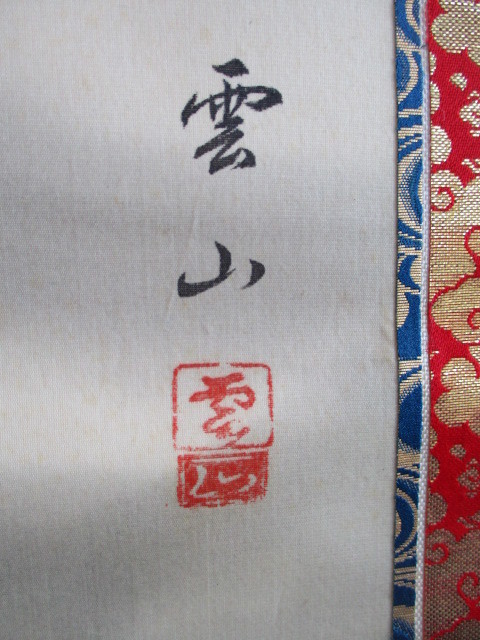 雲山
雲
山